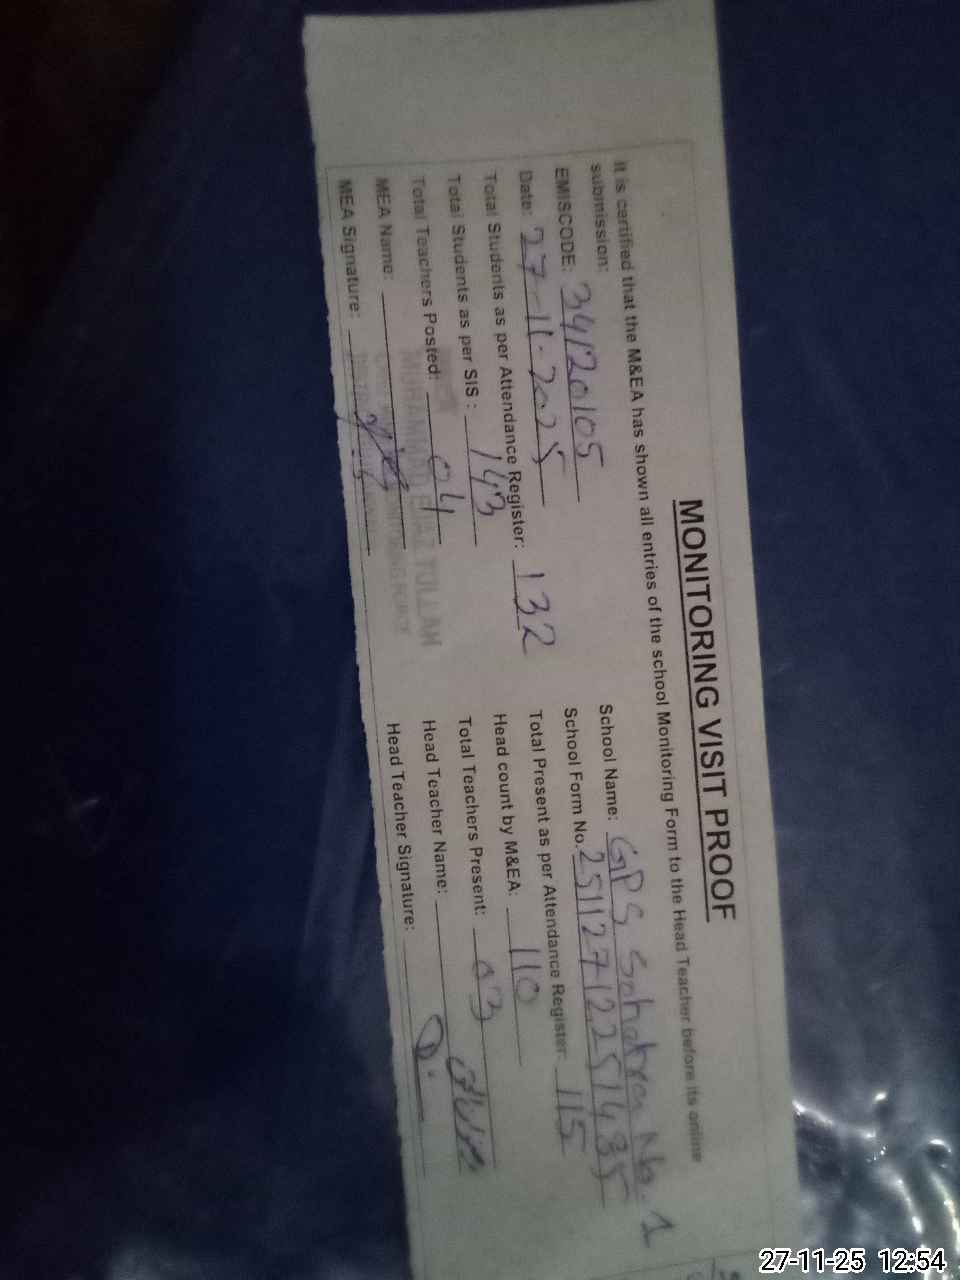 MONITORING VISIT PROOF
It is certified that the M&EA has shown all entries of the school Monitoring Form to the Head Teacher before its online
submission:
EMISCODE: 34120105
School Name: GPS No. 1
Date: 27-11-2025
School Form No. 251127122514
Total Students as per Attendance Register: 132
Total Present as per Attendance Register: 115
Total Students as per SIS : 143
Head count by M&EA: 110
Total Teachers Posted: 04
Total Teachers Present: 03
MEA Name:
Head Teacher Name:
MEA Signature:
Head Teacher Signature:
27-11-25 12:54